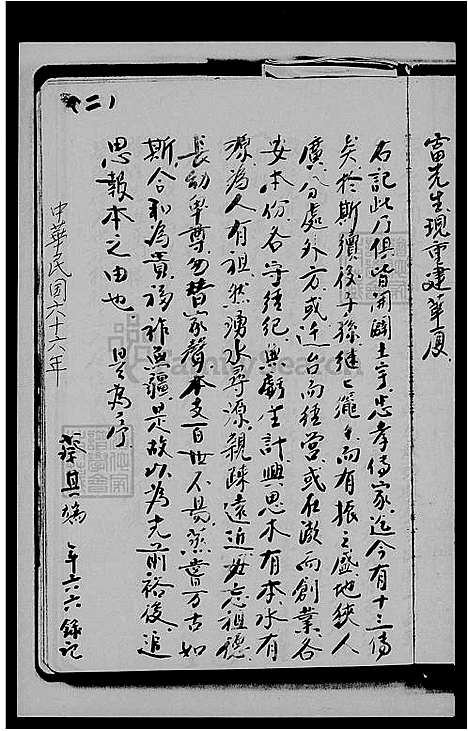 富先生現重建華廈
右記此乃俱皆開闢土宇忠孝傳家迄今有十三傳
矣於斯續後子孫繩繩而有振之盛地狹人
廣分處外方或迁台而經營或在漵而創業各
安本份各守經紀興思木有本水有
源為人有祖然湧水尋源親疎遠近毋忘祖德
長幼卑尊勿替家聲本支百世不易蒸嘗万古如
斯合和為貴福祚無疆是故以為光前裕後追
思報本之由也 是為序
中華民国六十六年
蔡 年六六錄記
(二)
FamilySearch